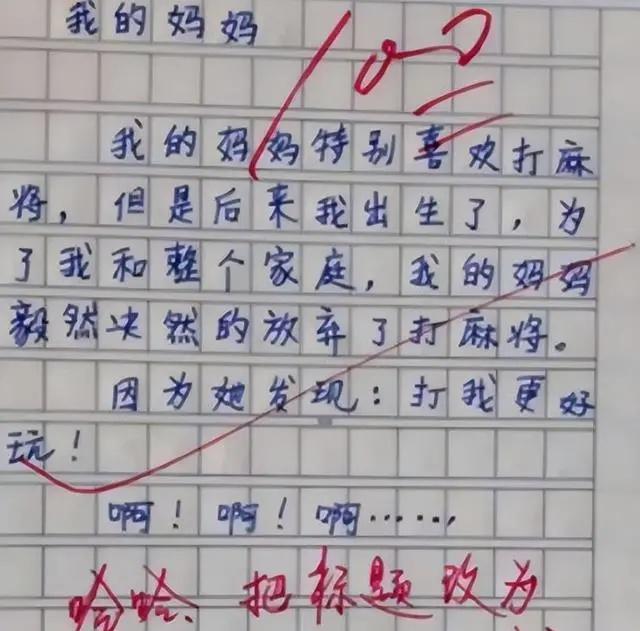 我的妈妈
我的妈妈特别喜欢打麻
将，但是后来我出生了，为
了我和整个家庭，我的妈妈
毅然决然的放弃了打麻将。
因为她发现：打我更好
玩！
啊！啊！啊……
哈哈、把标题改为